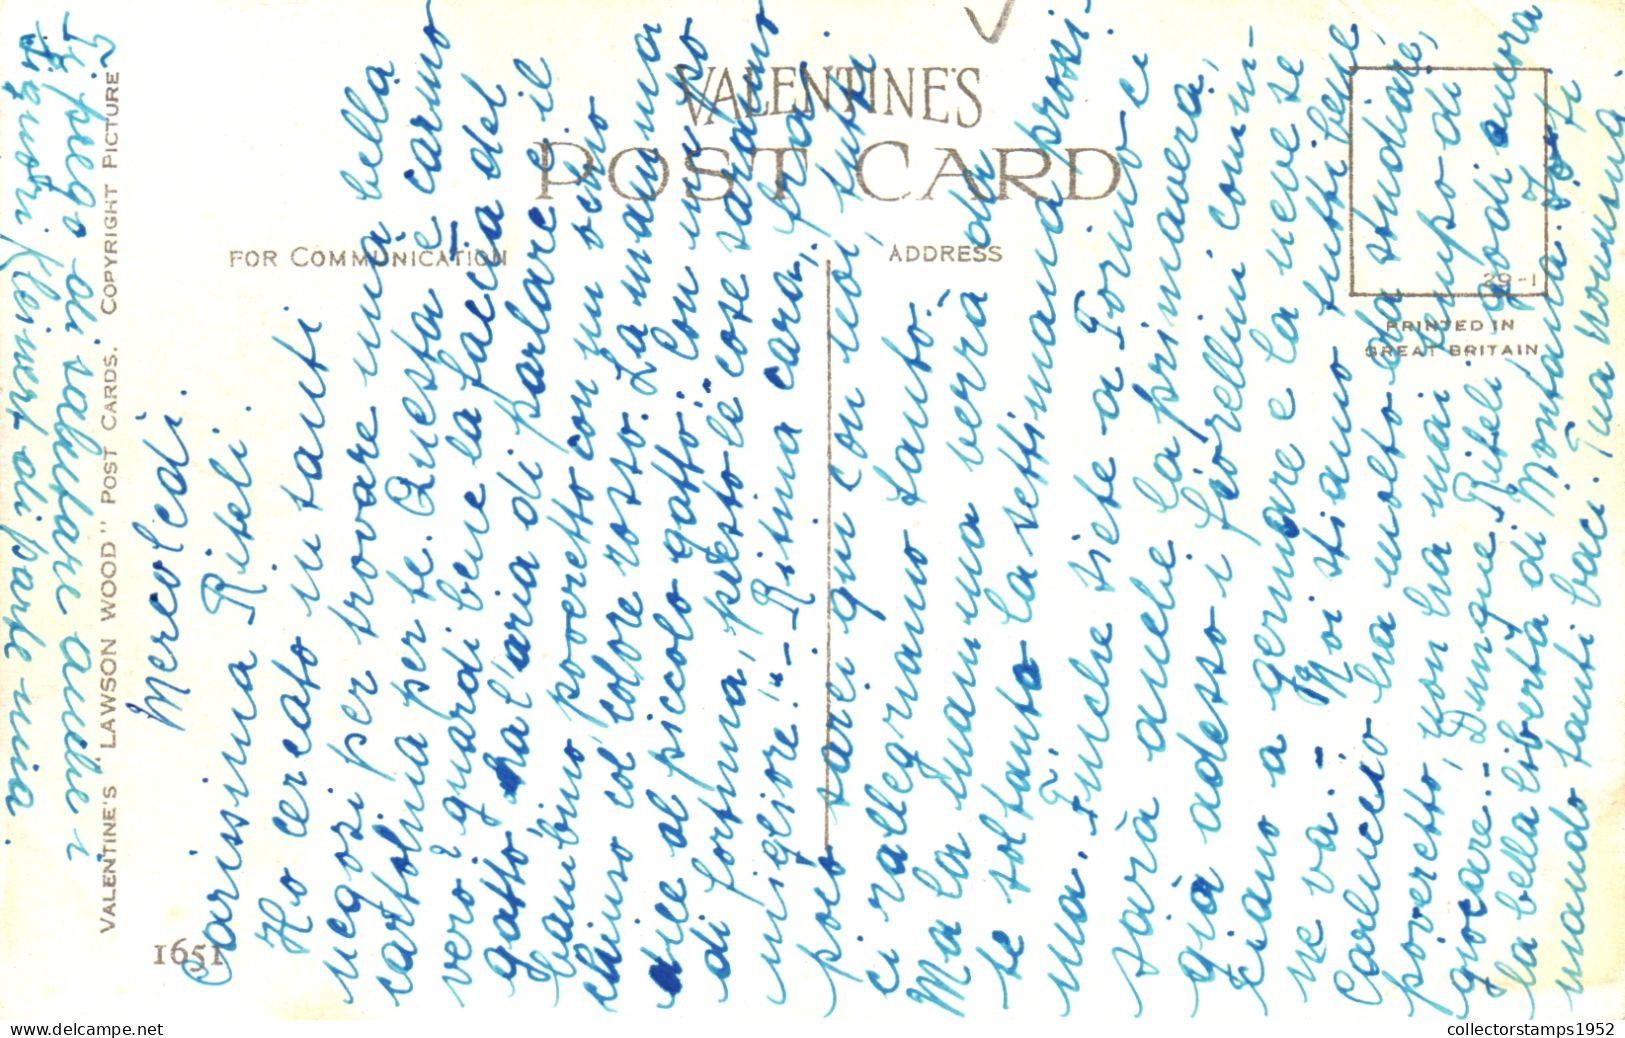 Mercoledì.
Carissima Riteli.
Ho cercato in tanti
negozi per trovare una bella
cartolina per te. Questa è carino
vero? guardi bene la faccia del
gatto ha l'aria di parlare il
bambino poveretto con un ochio
chiuso col'colore rosso. La mamma
dice al piccolo gatto: "Con un po
di fortuna, queste le cose saranno
migliore!" - Ritina cara, fra
poco sarei qui con noi, tutti
ci rallegriamo tanto.
Ma la mamma verrà da
te soltanto la settimana prossi-
ma. Finche siete a Torino ci
sarà anche la primavera,
già adesso i fiorellini comin-
ciano a germare e la neve se
ne va. - Noi stiamo tutti bene
Carluccio ha molto da studiare,
poveretto, non ha mai tempo di
giocare. - Dunque Riteli godi ancora
la bella libertà di Montana. Ti
mando tanti baci. Tua nonna
Ti prego di salutare anche i
Signori Kleinert di parte mia.
VALENTINE'S
POST CARD
FOR COMMUNICATION
ADDRESS
29-1
PRINTED IN
GREAT BRITAIN
VALENTINE'S "LAWSON WOOD" POST CARDS. COPYRIGHT PICTURE
1651
www.delcampe.net
collectorstamps1952